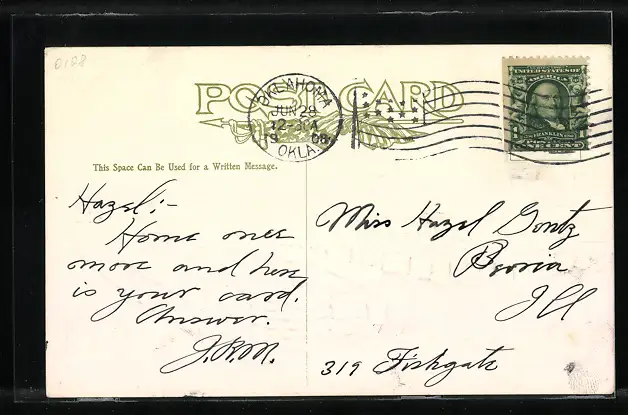 0188
POST CARD
OKLAHOMA
JUN 28
12-30A
1908
OKLA.
UNITED STATES OF AMERICA
FRANKLIN
1 ONE CENT 1
This Space Can Be Used for a Written Message.
Hazel:-
Home once
more and here
is your card.
Answer.
J.R.M.
Miss Hazel Gontz
Peoria
Ill
319 Fishgate